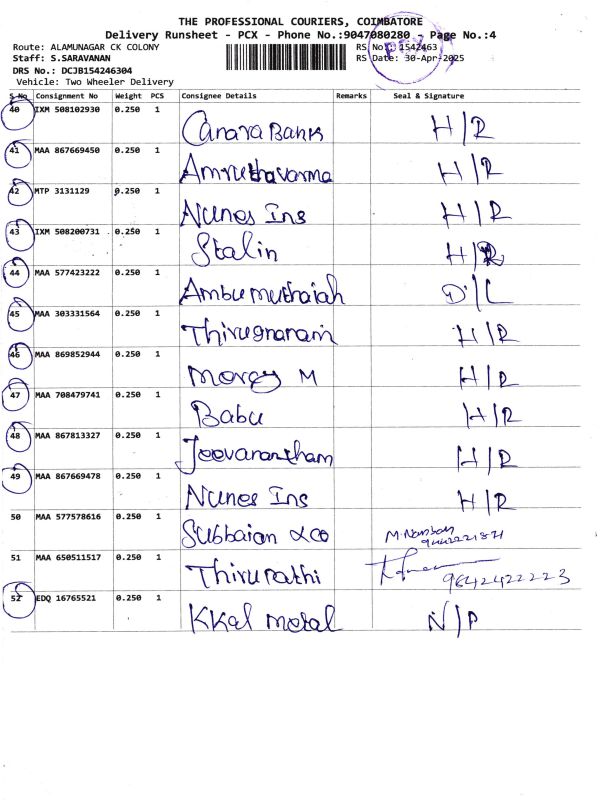 THE PROFESSIONAL COURIERS, COIMBATORE
Delivery Runsheet - PCX - Phone No.:9047080280 - Page No.:4
Route: ALAMUNAGAR CK COLONY RS No.: 1542463
Staff: S.SARAVANAN RS Date: 30-Apr-2025
DRS No.: DCJB154246304
Vehicle: Two Wheeler Delivery
PCX
S.No Consignment No Weight PCS Consignee Details Remarks Seal & Signature
40 IXM 508102930 0.250 1 Canara Bank H/R
41 MAA 867669450 0.250 1 Amruthavarma H/R
42 MTP 3131129 0.250 1 Nunes Ins H/R
43 IXM 508200731 0.250 1 Stalin H/R
44 MAA 577423222 0.250 1 Ambumuthaiah D/L
45 MAA 303331564 0.250 1 Thirugnanam H/R
46 MAA 869852944 0.250 1 M H/R
47 MAA 708479741 0.250 1 Babu H/R
48 MAA 867813327 0.250 1 Jeevanantham H/R
49 MAA 867669478 0.250 1 Nunes Ins H/R
50 MAA 577578616 0.250 1 Subbaian &co
51 MAA 650511517 0.250 1 Thirupathi 9642422223
52 EDQ 16765521 0.250 1 Kkal metal N/P